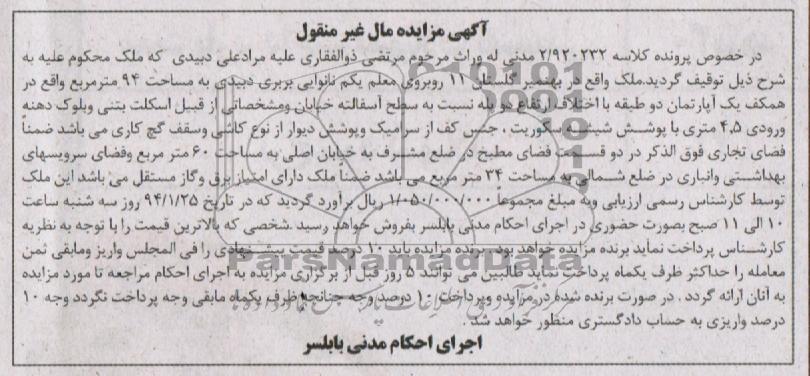 آگهی مزایده مال غیر منقول
در خصوص پرونده کلاسه ۲/۹۲۰۲۳۲ مدنی له وراث مرحوم مرتضی ذوالفقاری علیه مرادعلی دبیدی که ملک محکوم علیه به
شرح ذیل توقیف گردید.ملک واقع در بهنمیر گلستان ۱۱ روبروی معلم یکم نانوایی بربری دبیدی به مساحت ۹۴ مترمربع واقع در
همکف یک آپارتمان دو طبقه با اختلاف ارتفاع دو پله نسبت به سطح آسفالته خیابان ومشخصاتی از قبیل اسکلت بتنی وبلوک دهنه
ورودی ۴,۵ متری با پوشش شیشه سکوریت ، جنس کف از سرامیک وپوشش دیوار از نوع کاشی وسقف گچ کاری می باشد ضمناً
فضای تجاری فوق الذکر در دو قسمت فضای مطبخ در ضلع مشرف به خیابان اصلی به مساحت ۶۰ متر مربع وفضای سرویسهای
بهداشتی وانباری در ضلع شمالی به مساحت ۳۴ متر مربع می باشد ضمناً ملک دارای امتیاز برق وگاز مستقل می باشد این ملک
توسط کارشناس رسمی ارزیابی وبه مبلغ مجموعاً ۱/۰۵۰/۰۰۰/۰۰۰ ریال برآورد گردید که در تاریخ ۹۴/۱/۲۵ روز سه شنبه ساعت
۱۰ الی ۱۱ صبح بصورت حضوری در اجرای احکام مدنی بابلسر بفروش خواهد رسید .شخصی که بالاترین قیمت را با توجه به نظریه
کارشناس پرداخت نماید برنده مزایده خواهد بود.برنده مزایده باید ۱۰ درصد قیمت پیشنهادی را فی المجلس واریز ومابقی ثمن
معامله را حداکثر ظرف یکماه پرداخت نماید طالبین می توانند ۵ روز قبل از برگزاری مزایده به اجرای احکام مراجعه تا مورد مزایده
به آنان ارائه گردد . در صورت برنده شده در مزایده وپرداخت ۱۰ درصد وجه چنانچه ظرف یکماه مابقی وجه پرداخت نگردد وجه ۱۰
درصد واریزی به حساب دادگستری منظور خواهد شد .
اجرای احکام مدنی بابلسر
ParsNamadData